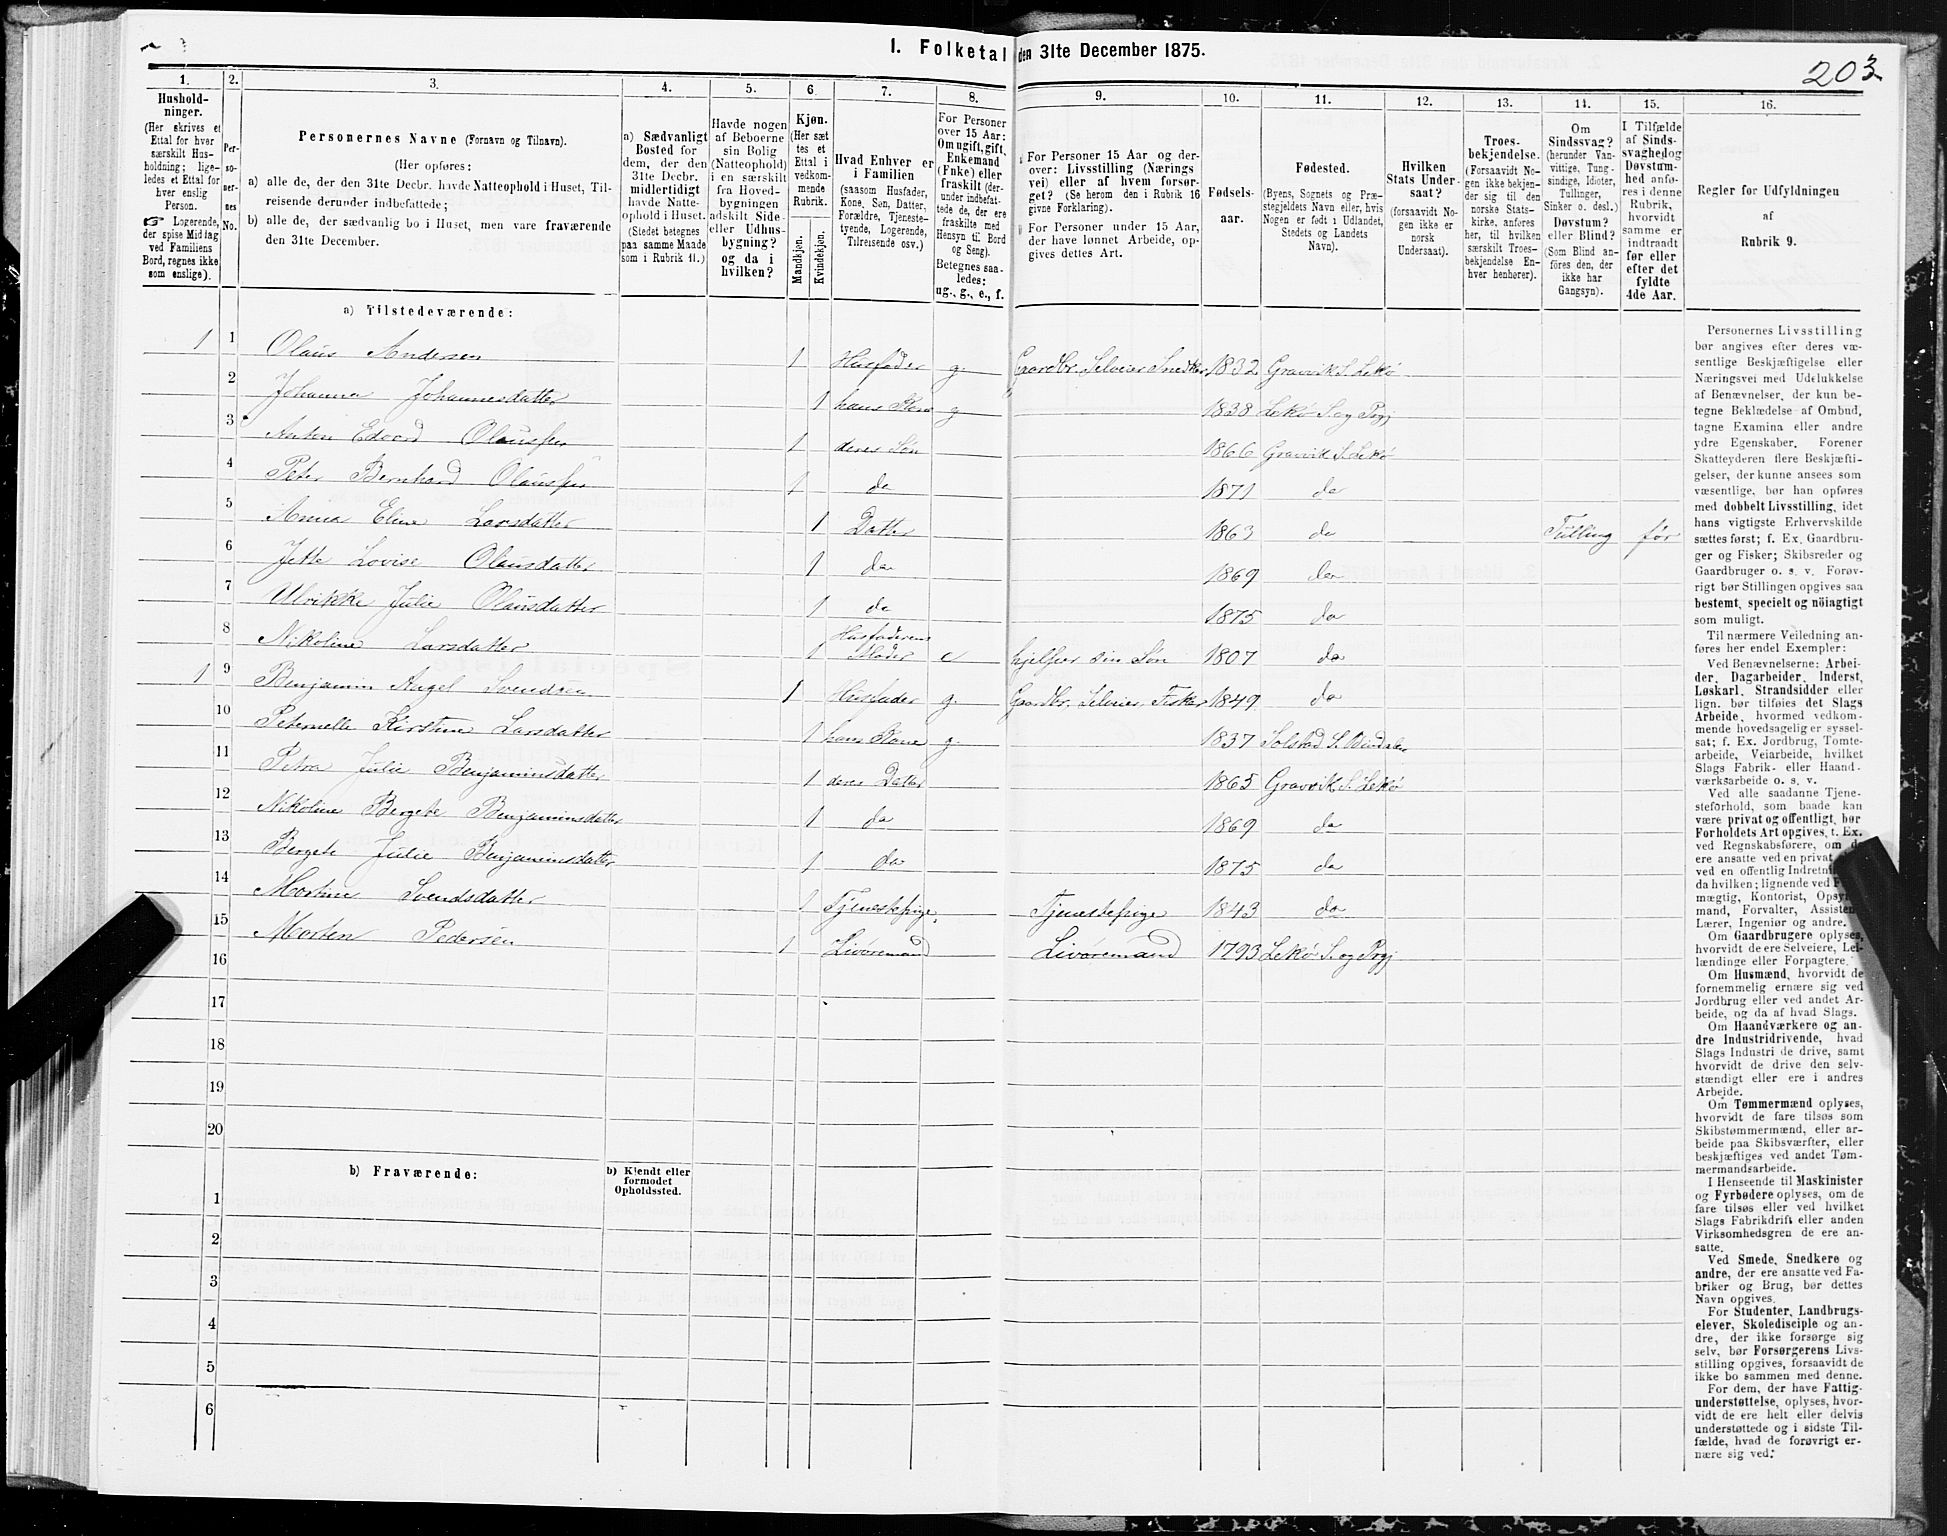 I. Folketal den 31te December 1875.
203
1. 2. 3. 4. 5. 6. 7. 8. 9. 10. 11. 12. 13. 14. 15. 16.
Hushold-
ninger.
(Her skrives et
Ettal for hver
særskilt Hus-
holdning; lige-
ledes et Ettal for
hver enslig
Person.
☞ Logerende,
der spise Middag
ved Familiens
Bord, regnes ikke
som enslige).
Per-
so-
ner-
nes
No.
Personernes Navne (Fornavn og Tilnavn).
(Her opføres:
a) alle de, der den 31te Decbr. havde Natteophold i Huset, Til-
reisende derunder indbefattede;
b) alle de, der sædvanlig bo i Huset, men vare fraværende
den 31te December.
a) Sædvanligt
Bosted for
dem, der den
31te Decbr.
midlertidigt
havde Natte-
ophold i Huset.
(Stedet betegnes
paa samme Maade
som i Rubrik 11.)
Havde nogen
af Beboerne
sin Bolig
(Natteophold)
i en særskilt
fra Hoved-
bygningen
adskilt Side-
eller Udhus-
bygning?
og da i
hvilken?
Kjøn.
(Her sæt-
tes et
Ettal i
vedkom-
mende
Rubrik.
Mandkjøn.
Kvindekjøn.
Hvad Enhver er
i Familien
(saasom Husfader,
Kone, Søn, Datter,
Forældre, Tjeneste-
tyende, Logerende,
Tilreisende osv.)
For Personer
over 15 Aar:
Om ugift, gift,
Enkemand
(Enke) eller
fraskilt (der-
under indbefat-
tede de, der ere
fraskilte med
Hensyn til Bord
og Seng).
Betegnes saa-
ledes:
ug., g., e., f.
For Personer 15 Aar og der-
over: Livsstilling (Nærings
vei) eller af hvem forsør-
get? (Se herom den i Rubrik 16
givne Forklaring).
For Personer under 15 Aar,
der have lønnet Arbeide, op-
gives dettes Art.
Fødsels-
aar.
Fødested.
(Byens, Sognets og Præ-
stegjeldets Navn eller, hvis
Nogen er født i Udlandet,
Stedets og Landets
Navn).
Hvilken
Stats Under-
saat?
(forsaavidt No-
gen ikke er
norsk
Undersaat).
Troes-
bekjendelse.
(Forsaavidt No-
gen ikke bekjen-
der sig til den
norske Stats-
kirke, anføres
her, til hvilken
særskilt Troes-
bekjendelse En-
hver henhører).
Om
Sindssvag?
(herunder Van-
vittige, Tung-
sindige, Idioter,
Tullinger,
Sinker o. desl.)
Døvstum?
eller Blind?
(Som Blind an-
føres den, der
ikke har
Gangsyn).
I Tilfælde
af Sinds-
svaghed og
Døvstum-
hed anfø-
res i denne
Rubrik,
hvorvidt
samme er
indtraadt
før eller
efter det
fyldte
4de Aar.
Regler for Udfyldningen
af
Rubrik 9.
a) Tilstedeværende:
1 1 Olaus Andersen 1 Husfader g. Gaardbr. Selveier Snedker 1832 Gravvik S. Lekø
2 Johanna Johannesdatter 1 hans Kone g 1838 Lekø S. og Prgj
3 Anton Edvard Olaussen 1 deres Søn 1866 Gravvik S. Lekø
4 Peter Bernhard Olaussen 1 do 1871 do
5 Anna Eline Larsdatter 1 Datter 1863 do Tulling før
6 Jette Lovise Olausdatter 1 do 1869 do
7 Ulrikke Julie Olausdatter 1 do 1875 do
8 Nikoline Larsdatter 1 Husfaderens Moder e hjelper sin Søn 1807 do
1 9 Benjamin Angel Svendsen 1 Husfader g. Gaardbr. Selveier, Fisker 1849 do
10 Peternelle Kirstine Larsdatter 1 hans Kone g. 1837 Solstad S. Bindalen
11 Petra Julie Benjaminsdatter 1 deres Datter 1865 Gravvik S. Lekø
12 Nikoline Bergete Benjaminsdatter 1 do 1869 do
13 Bergete Julie Benjaminsdatter 1 do 1875 do
14 Martine Svendsdatter 1 Tjenestepige, Tjenestepige 1843 do
15 Morten Pedersen 1 Livøremand Livøremand 1793 Lekø S. og Prgj
16
17
18
19
20
b) Fraværende:
b) Kjendt eller
formodet
Opholdssted.
1
2
3
4
5
6
Personernes Livsstilling
bør angives efter deres væ-
sentlige Beskjæftigelse eller
Næringsvei med Udelukkelse
af Benævnelser, der kun be-
tegne Beklædelse af Ombud,
tagne Examina eller andre
ydre Egenskaber. Forener
Skatteyderen flere Beskjæfti-
gelser, der kunne ansees som
væsentlige, bør han opføres
med dobbelt Livsstilling, idet
hans vigtigste Erhvervskilde
sættes først; f. Ex. Gaardbru-
ger og Fisker; Skibsreder og
Gaardbruger o. s. v. Forøv-
rigt bør Stillingen opgives saa
bestemt, specielt og nöiagtigt
som muligt.
Til nærmere Veiledning an-
føres her endel Exempler:
Ved Benævnelserne: Arbei-
der, Dagarbeider, Inderst,
Løskarl, Strandsidder eller
lign. bør tilføies det Slags
Arbeide, hvormed vedkom-
mende hovedsagelig er syssel-
sat; f. Ex. Jordbrug, Tomte-
arbeide, Veiarbeide, hvilket
Slags Fabrik- eller Haand-
værksarbeide o. s. v.
Ved alle saadanne Tjene-
steforhold, som baade kan
være privat og offentligt, bør
Forholdets Art opgives, t. Ex.
ved Regnskabsførere, om de
ere ansatte ved en privat
ved en offentlig Indretni
da hvilken; lignende ved F
mægtig, Kontorist, Opsyn
mand, Forvalter, Assisten
Lærer, Ingeniør og andre.
Om Gaardbrugere oplyses,
hvorvidt de ere Selveiere, Lei-
lændinge eller Forpagtere.
Om Husmænd, hvorvidt de
fornemmelig ernære sig ved
Jordbrug eller ved andet Ar-
beide, og da af hvad Slags.
Om Haandværkere og an-
dre Industridrivende, hvad
Slags Industri de drive, samt
hvorvidt de drive den selv-
stændigt eller ere i andres
Arbeide.
Om Tømmermænd oplyses,
hvorvidt de fare tilsøs som
Skibstømmermænd, eller ar-
beide paa Skibsværfter, eller
beskjæftiges ved andet Tøm-
mermandsarbeide.
I Henseende til Maskinister
og Fyrbødere oplyses, om de
fare tilsøs eller ved hvilket
Slags Fabrikdrift eller anden
Virksomhedsgren de ere an-
satte.
Ved Smede, Snedkere og
andre, der ere ansatte ved Fa-
briker og Brug, bør dettes
Navn opgives.
For Studenter, Landbrugs-
elever, Skoledisciple og an-
dre, der ikke forsørge sig
selv, bør Forsørgerens Livs-
stilling opgives, forsaavidt de
ikke bo sammen med denne.
For dem, der have Fattig-
understøttelse, oplyses, hvor-
vidt de ere helt eller delvis
understøttede og i sidste Til-
fælde, hvad de forøvrigt er-
nære sig ved.